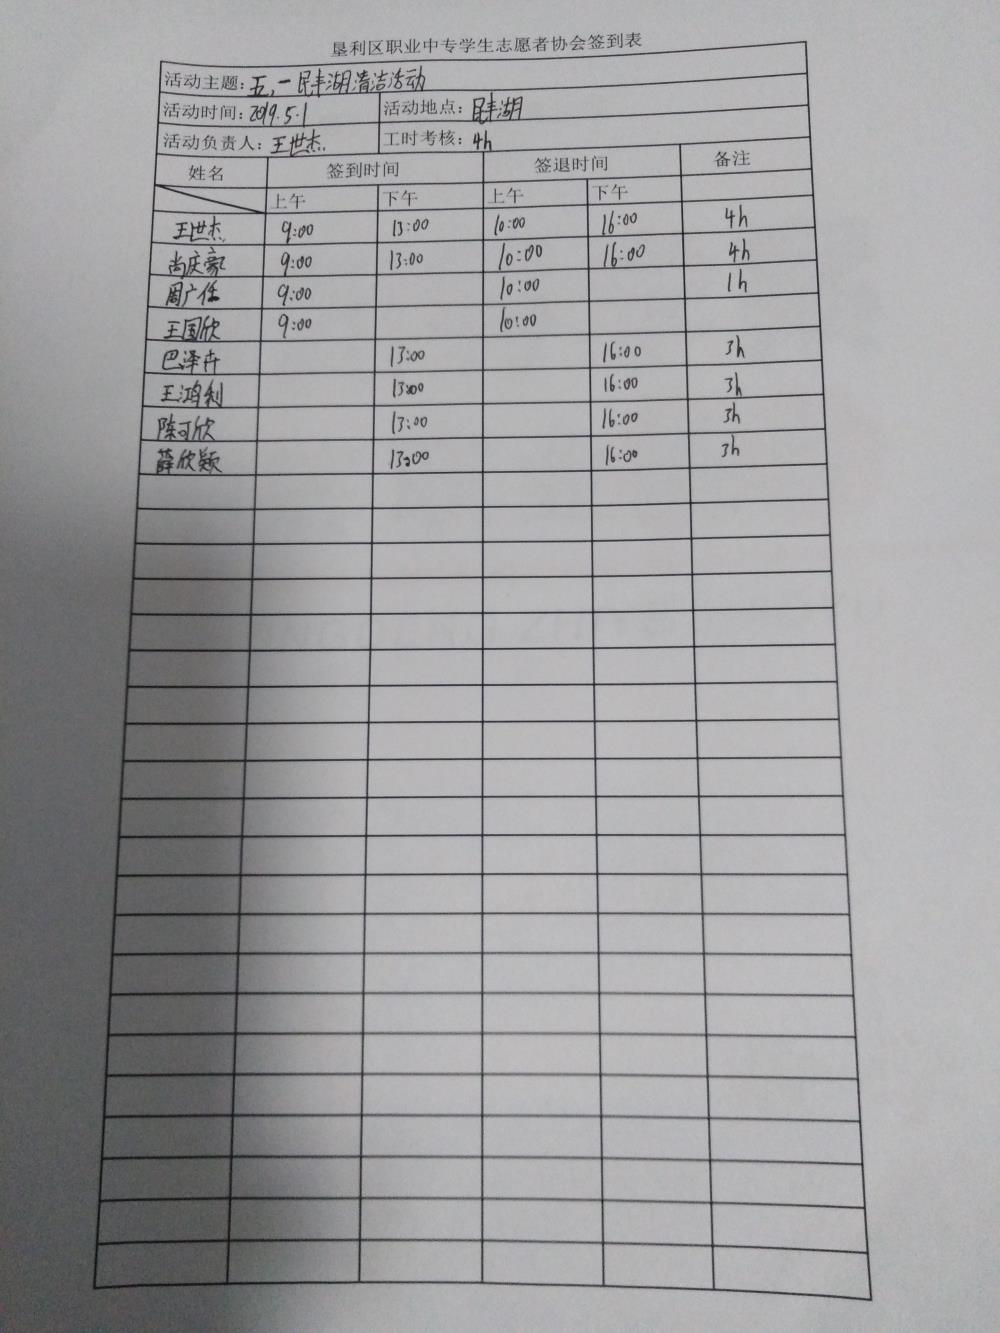 垦利区职业中专学生志愿者协会签到表
活动主题: 五,一民丰湖清洁活动
活动时间: 2019.5.1 活动地点: 民丰湖
活动负责人: 王世杰 工时考核: 4h
姓名 签到时间 签退时间 备注
上午 下午 上午 下午
王世杰 9:00 13:00 10:00 16:00 4h
尚庆豪 9:00 13:00 10:00 16:00 4h
周广任 9:00 10:00 1h
王国欣 9:00 10:00
巴泽卉 13:00 16:00 3h
王鸿利 13:00 16:00 3h
陈可欣 13:00 16:00 3h
薛欣颖 13:00 16:00 3h